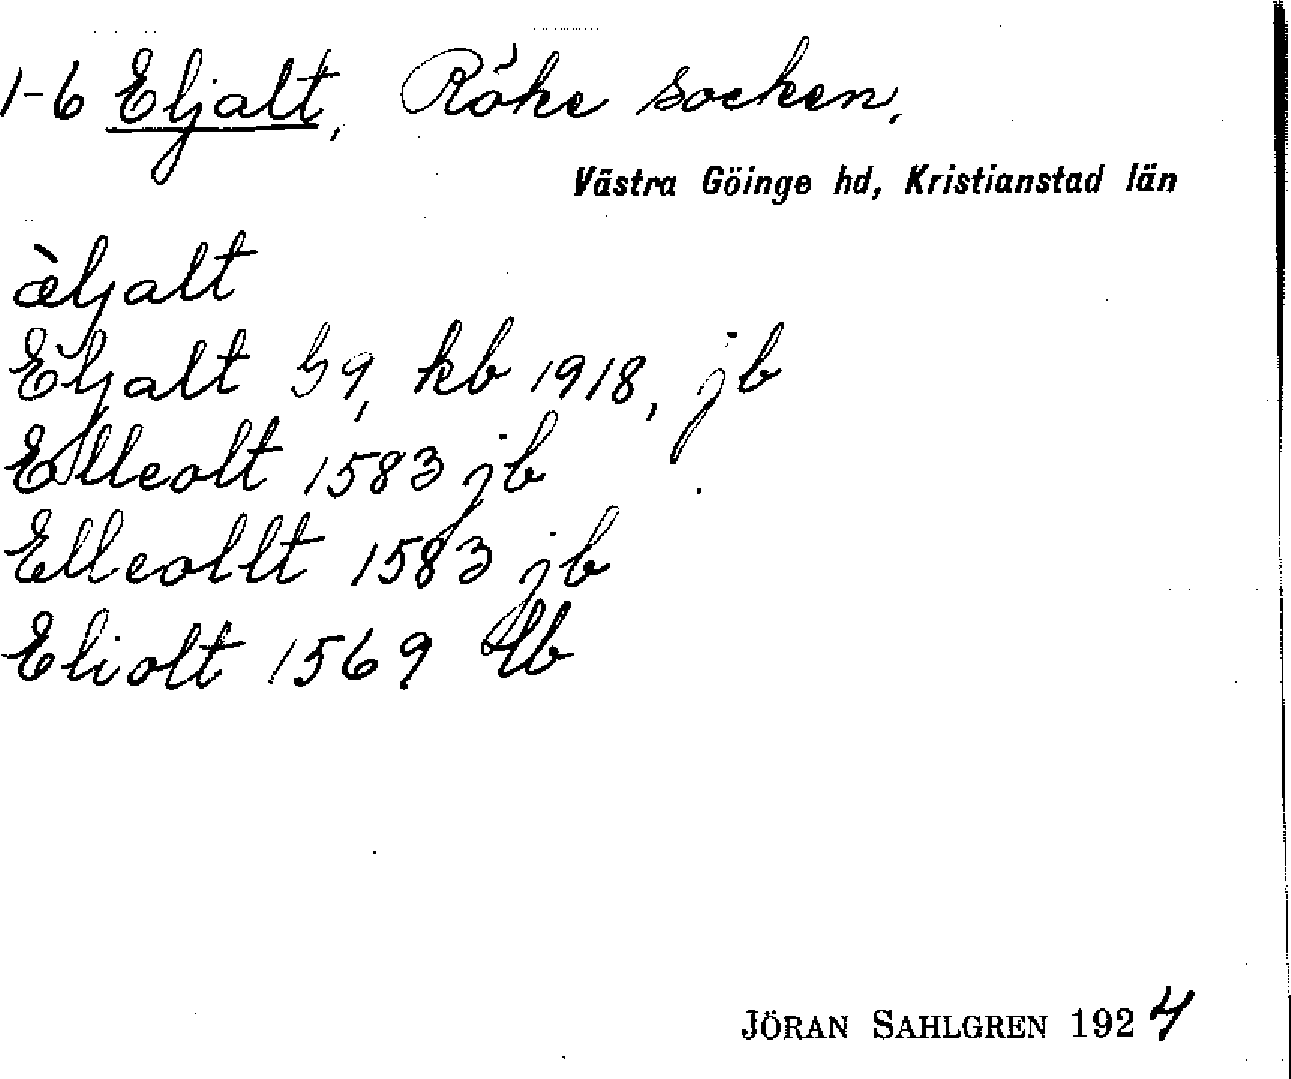 1-6 Eljalt, Röke socken,
Västra Göinge hd, Kristianstad län
æ̀ljalt
Eljalt G9, kb 1918, jb
Elleolt 1583 jb
Elleollt 1583 jb
Eliolt 1569 lb
JÖRAN SAHLGREN 1924